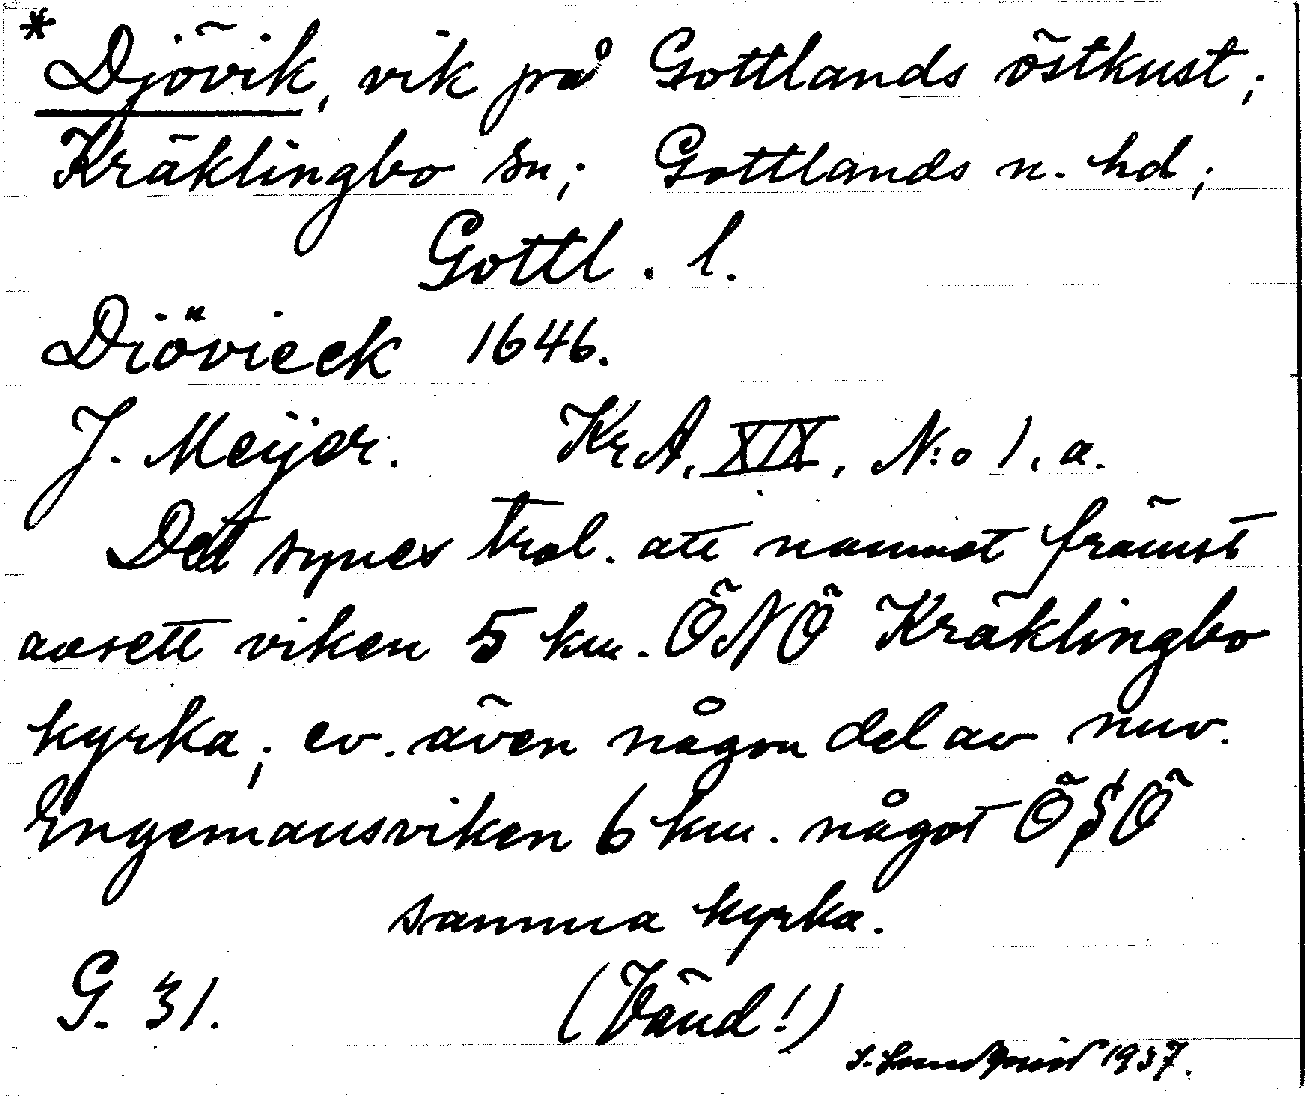 * Djövik, vik på Gottlands östkust;
Kräklingbo sn; Gottlands n. hd;
Gottl. l.
Diövieck 1646.
J. Meijer. Kr.A. XIX, N:o 1. a.
Det synes trol. att namnet främst
avsett viken 5 km. ÖNÖ Kräklingbo
kyrka; ev. även någon del av nuv.
Engemansviken 6 km. något ÖSÖ
samma kyrka.
G. 31. (Vänd!)
S. Lundqvist 1937.